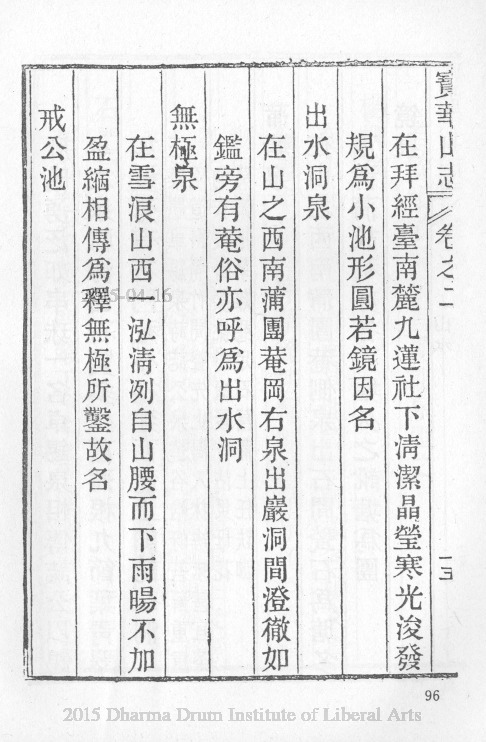 寶華山志 卷之二 十五
在拜經臺南麓九蓮社下清潔晶瑩寒光浚發
規爲小池形圓若鏡因名
出水洞泉
在山之西南蒲團菴岡右泉出巖洞間澄徹如
鑑旁有菴俗亦呼爲出水洞
無極泉
在雪浪山西一泓清洌自山腰而下雨暘不加
盈縮相傳爲釋無極所鑿故名
戒公池
96
2015 Dharma Drum Institute of Liberal Arts